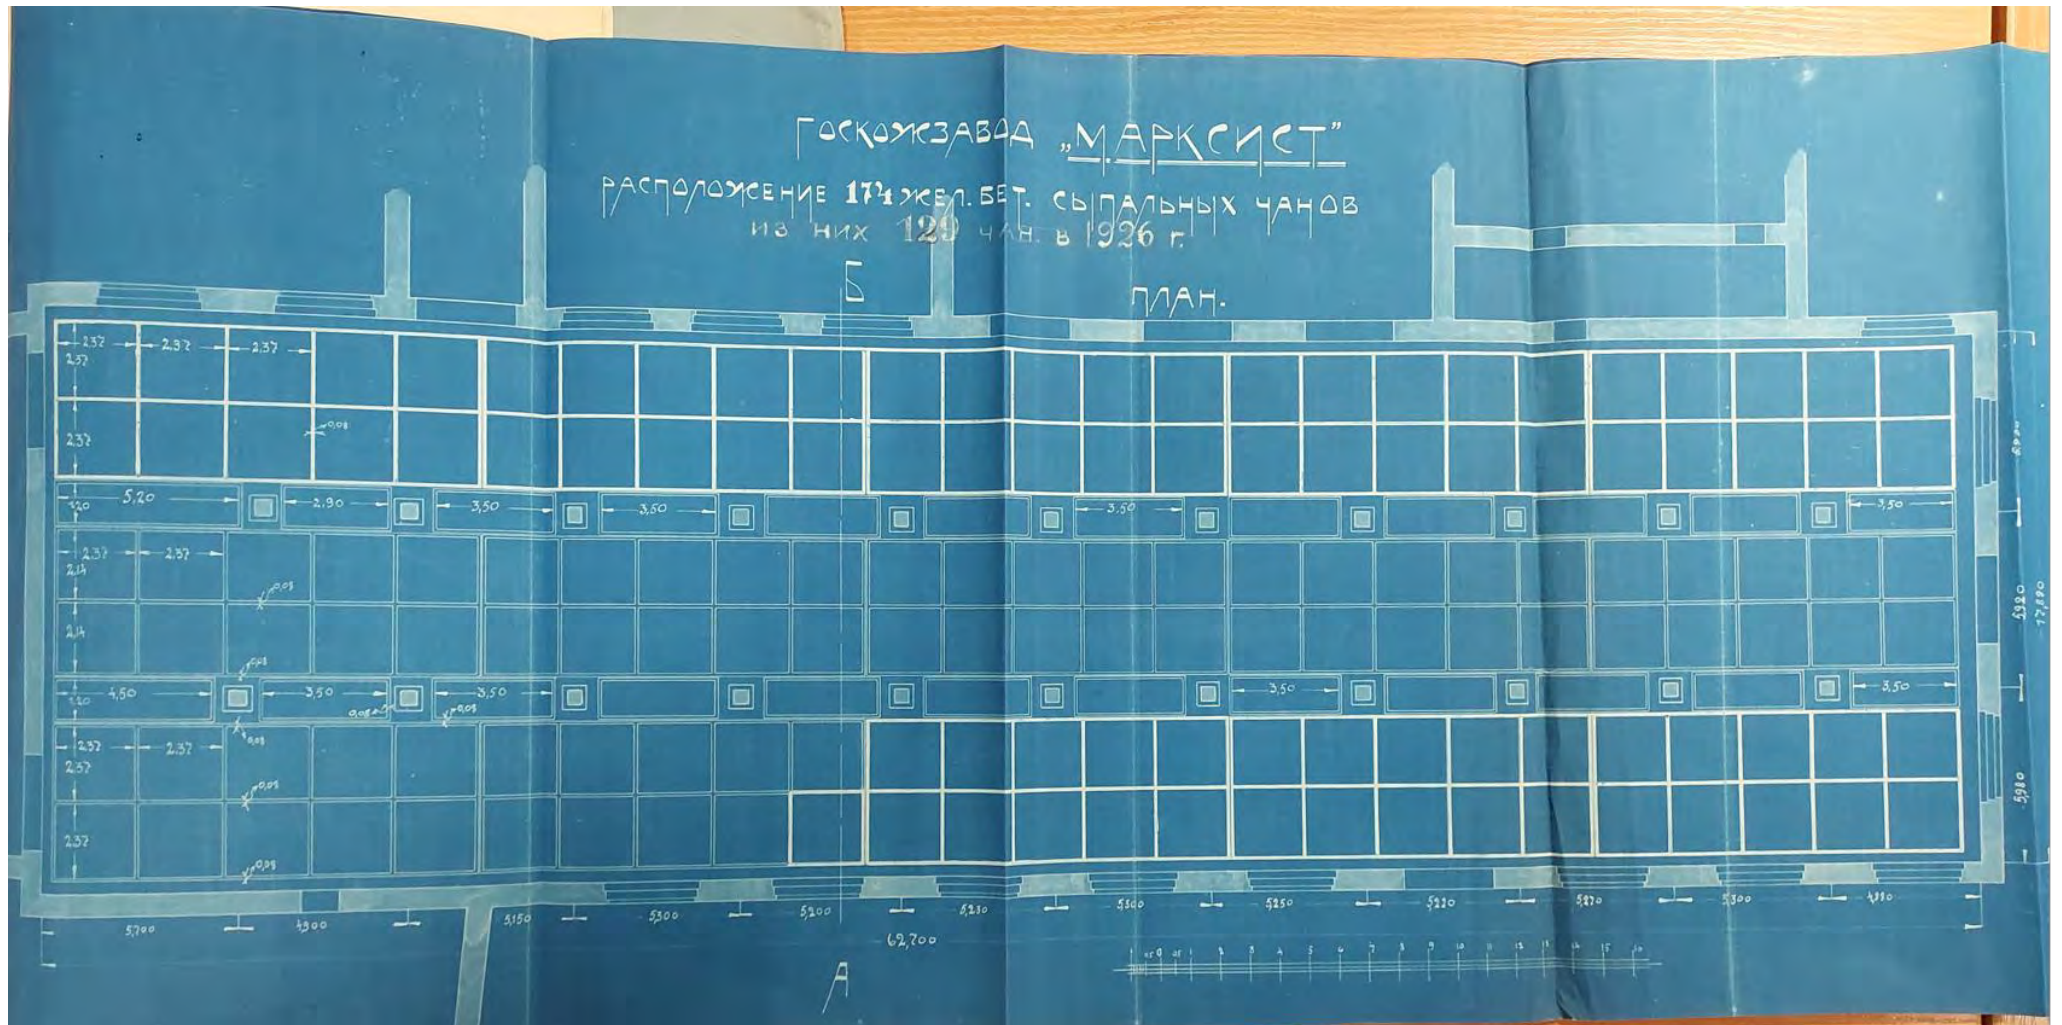 ГОСКОЖЗАВОД „МАРКСИСТ”
РАСПОЛОЖЕНИЕ 174 ЖЕЛ. БЕТ. СЫПАЛЬНЫХ ЧАНОВ
ИЗ НИХ 129 ЧАН. В 1926 г.
Б
ПЛАН.
2,37 2,37 2,37
2,37
2,37
0,08
5,20 2,90 3,50 3,50 3.50 3,50
1,20
2,37 2,37
2,14
0,08
2,14
0,08
4,50 3,50 3,50 3,50 3,50
1,20
0,08 0,08
0,08
2,37 2,37
2,37
0,08
2,37
0,08
5,920
5,980
17,880
5,700 4,900 5,150 5,300 5,200 5,230 5,300 5,250 5,220 5,270 5,300
62,700
0 1 2 3 4 5 6 7 8 9 10 11 12 13 14 15
А